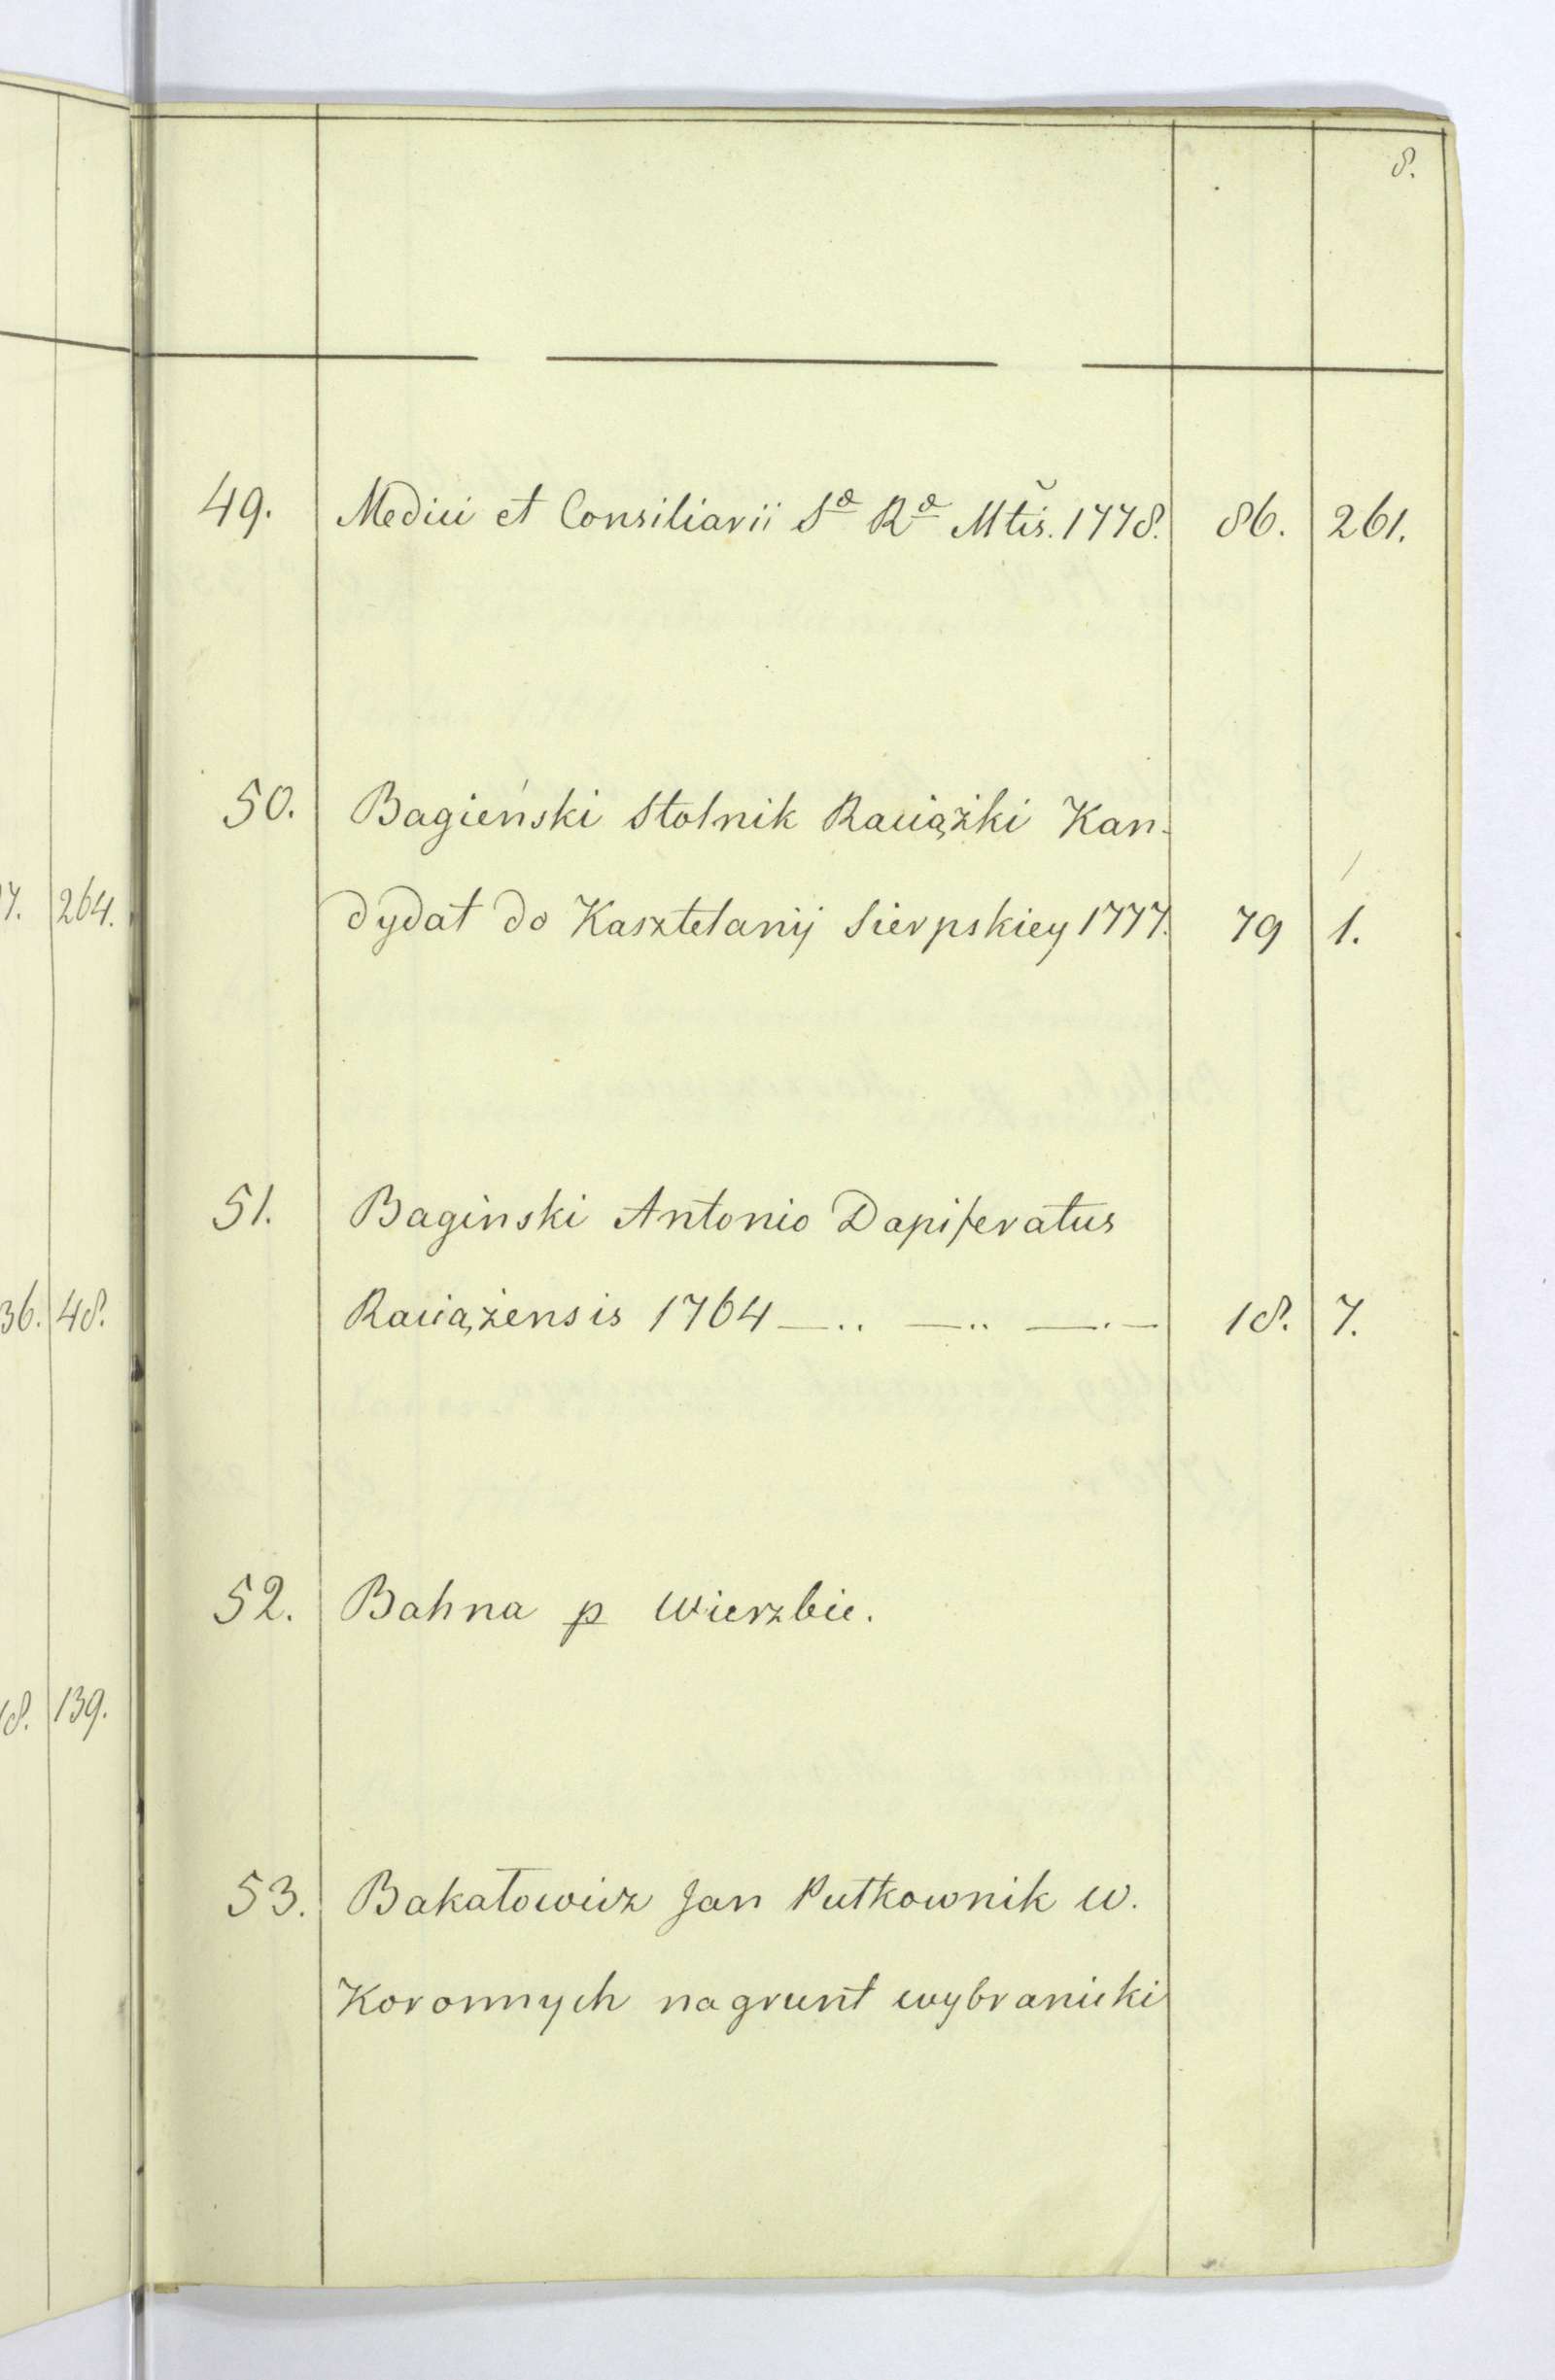 8.
49. Medici et Consiliarii Sæ Ræ Mtis. 1778. 86. 261.
50. Bagieński Stolnik Raciążki Kan-
dydat do Kasztelanij Sierpskiey 1777. 79 1.
51. Baginski Antonio Dapiferatus
Raciążensis 1764 —.. —.. —.— 18. 7.
52. Bahna p Wierzbie.
53. Bakałowicz Jan Pułkownik w.
Koronnych na grunt wybraniecki
264.
36. 48.
18. 139.